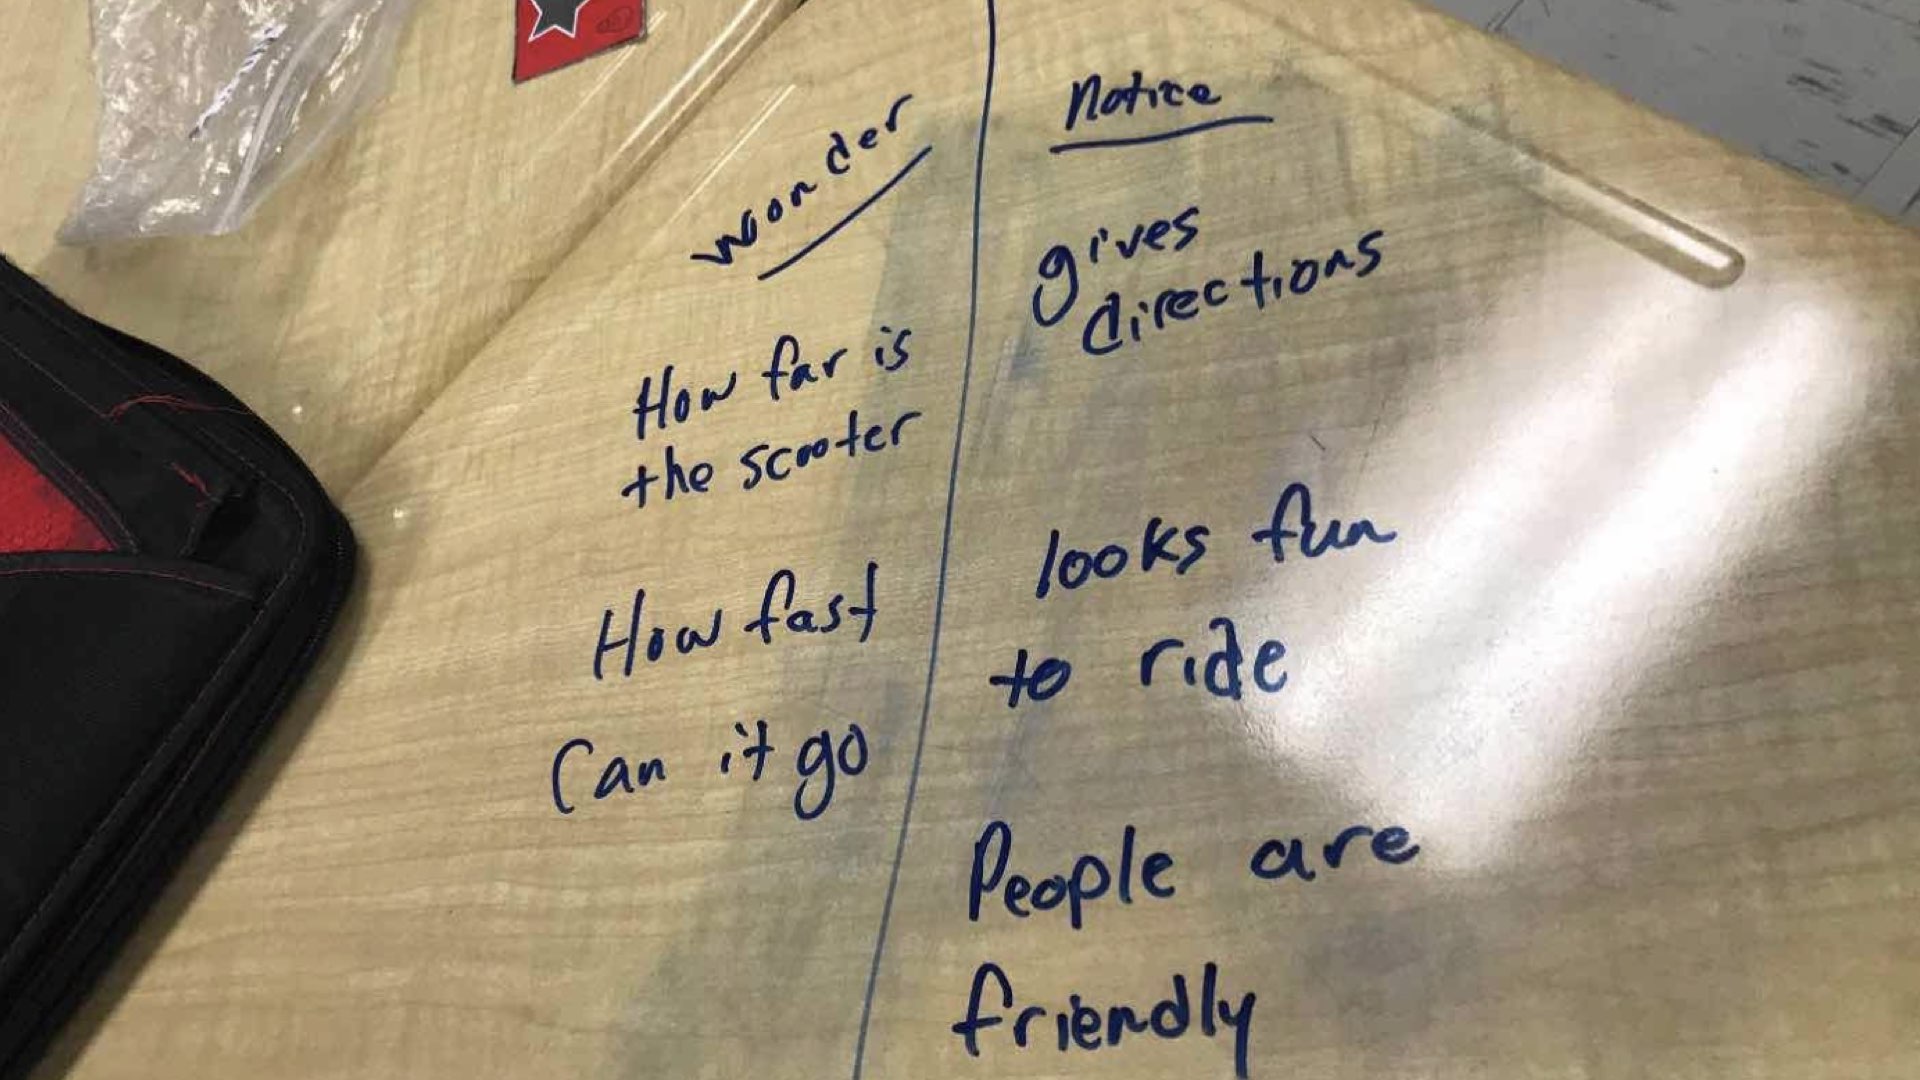 wonder
How far is
the scooter
How fast
Can it go
Notice
gives
directions
looks fun
to ride
People are
friendly